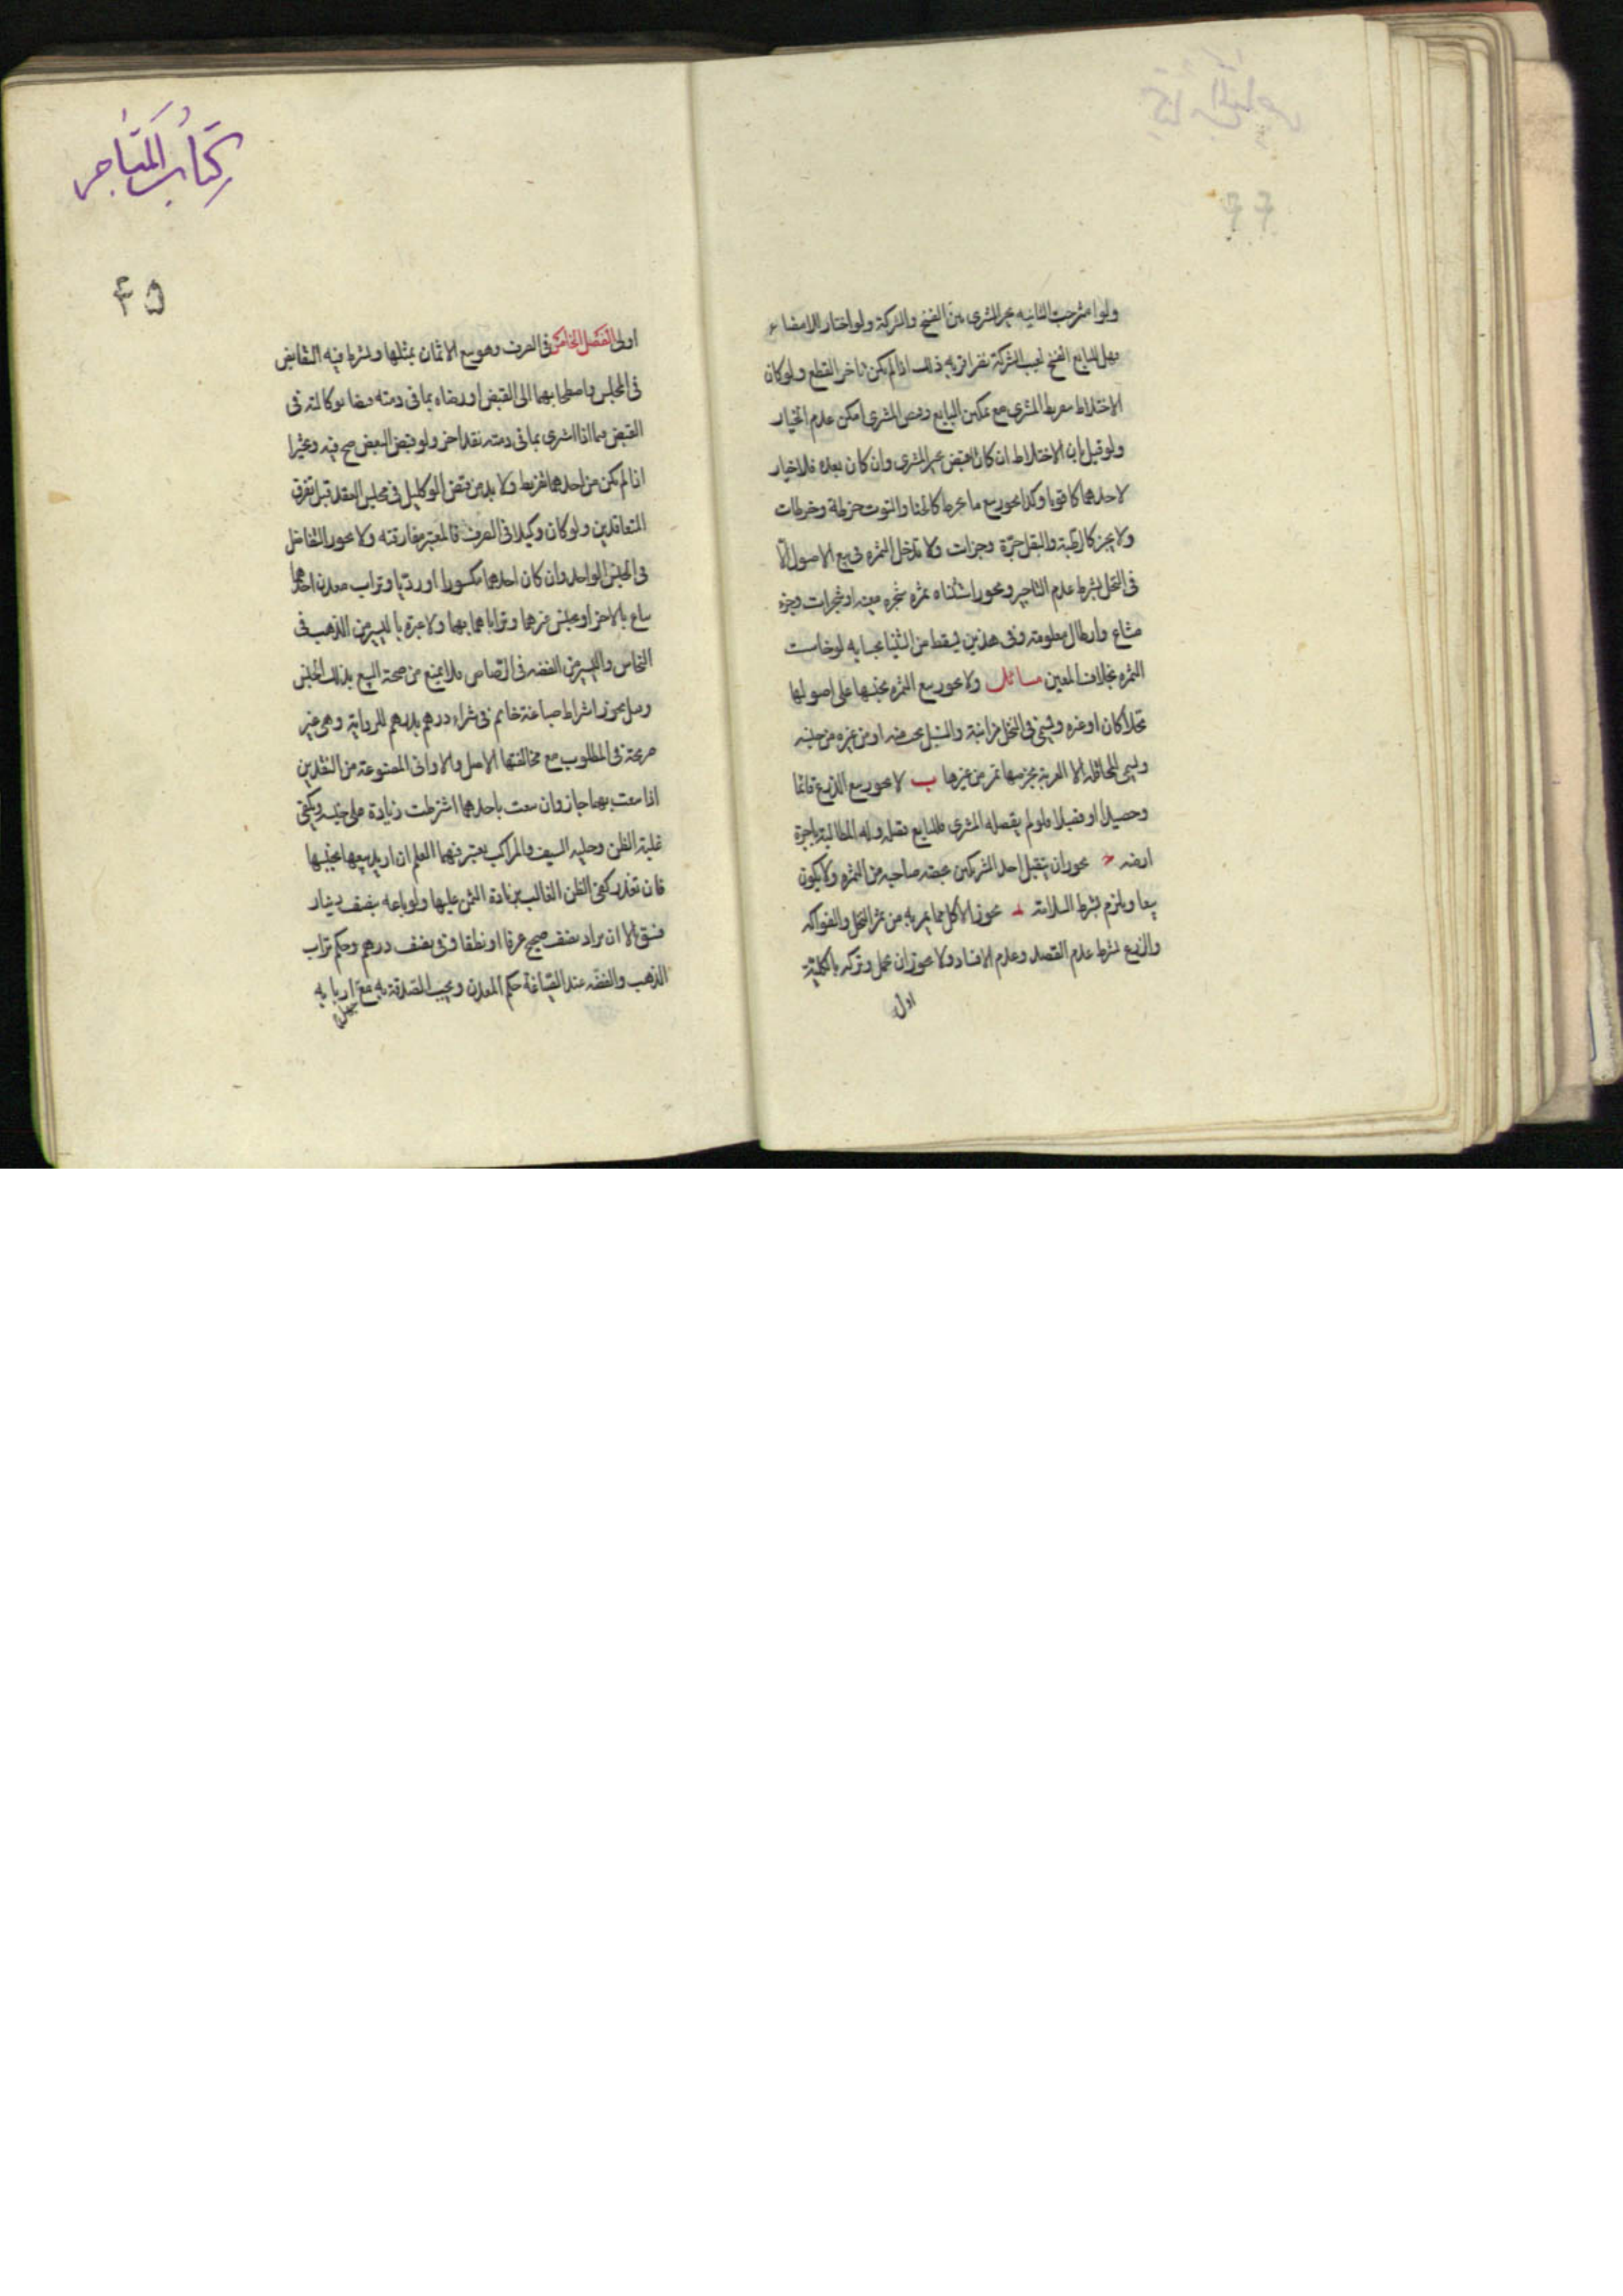 ولو امتزجت الثانيه تخير المشترى بين الفسخ والشركة ولو اختار الامضاء
فهل للبايع الفسخ لعيب الشركة نظر اقربه ذلك اذا لم يكن تاخر القطع ولو كان
الاختلاط بتفريط المشترى مع تمكين البايع وقبض المشترى امكن عدم الخيار
ولو قيل ان الاختلاط ان كان قبل القبض تخير المشترى وان كان بعده فلا خيار
لاحدهما كان قويا وكذا يجوز بيع ما يخرط كالحنا والتوت خرطة وخرطات
وما يجز كالرطبة والبقل جزة وجزات ولا تدخل الثمره فى بيع الاصول الا
فى النخل بشرط عدم التابير ويجوز استثناء ثمره شجره معينه او شجرات وجزء
مشاع وارطال معلومة وفى هذين يسقط من الثنيا بحسابه لو خاست
الثمره بخلاف المعين مسائل ولا يجوز بيع الثمره بجنسها على اصولها
نخلا كان او غيره ويسمى فى النخل مزابنة والسنبل بحب منه او من غيره من جنسه
ويسمى المحاقله الا العرية بخرصها تمر من غيرها ب لا يجوز بيع الزرع قائما
وحصيدا او فصيلا فلو لم يقصله المشترى فللبايع قصله وله المطالبة باجرة
ارضه يجوز ان يتقبل احد الشريكين بحصه صاحبه من الثمره ولا يكون
بيعا ويلزم بشرط السلامة يجوز الاكل مما يمر به من ثمر النخل والفواكه
والزرع بشرط عدم القصد وعدم الافساد ولا يجوز ان يحمل وتركه بالكلية
اولى
كتاب المتاجر
۴۵
اولى الفصل الخامس فى الصرف وهو بيع الاثمان بمثلها ويشترط فيه التقابض
فى المجلس واصطحابهما الى القبض او رضاه بما فى ذمته قبضا بوكالته فى
القبض فيما اذا اشترى بما فى ذمته نقدا اخر ولو قبض البعض صح فيه وتخيرا
اذا لم يكن من احدهما تفريط ولا بد من قبض الوكيل فى مجلس العقد قبل تفرق
المتعاقدين ولو كان وكيلا فى الصرف فالمعتبر مفارقته ولا يجوز التفاضل
فى الجنس الواحد وان كان احدهما مكسورا او رديا وتراب معدن احدهما
يباع بالاخر او بجنس غيرهما وترابا هما بهما ولا عبرة باليسير من الذهب فى
النحاس واليسير من الفضه فى الرصاص فلا يمنع من صحة البيع بذلك الجنس
وهل يجوز اشتراط صياغة خاتم فى شراء درهم بدرهم للرواية وهى غير
صريحة فى المطلوب مع مخالفتها الاصل والاوانى المصنوعة من النقدين
اذا بيعت بهما جاز وان بيعت باحدهما اشترطت زيادة على جنسه ويكفى
غلبة الظن وحليه السيف والمراكب يعتبر فيهما العلم ان اريد بيعها بجنسها
فان تعذر كفى الظن الغالب بزيادة الثمن عليها ولو باعه بنصف دينار
فشق الا ان يراد نصف صحيح عرفا او نطقا وفى بنصف درهم وحكم تراب
الذهب والفضّه عند الصياغة حكم المعدن ويجب الصدقة به مع اربابه